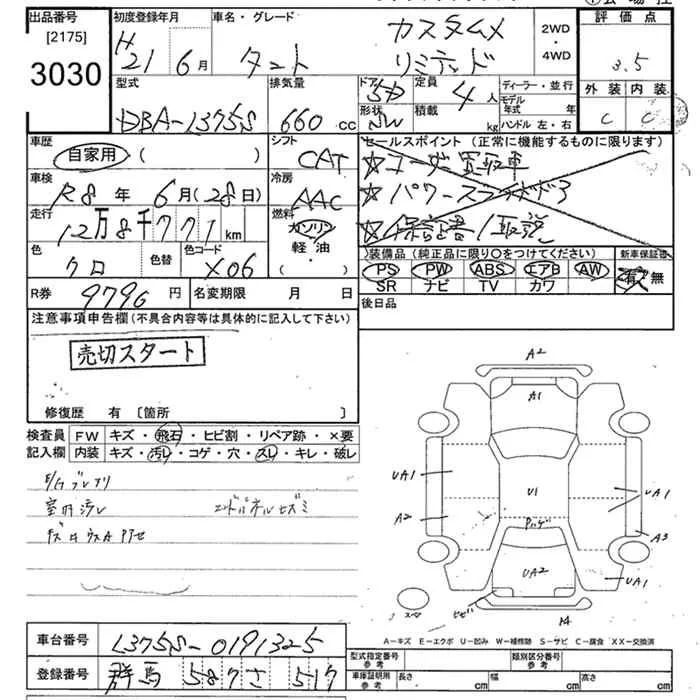 出品番号 初度登録年月 車名・グレード カスタムX 2WD・4WD 評価点
[2175] H21年6月 タント リミテッド 3.5
3030
型式 排気量 ドア 5D 定員 4人 ディーラー・並行 外装 内装
DBA-L375S 660cc 形状 SW 積載 kg モデル年式 年 C C
ハンドル 左・右
車歴 シフト セールスポイント (正常に機能するものに限ります)
自家用 ( ) CAT ☆ユーザー買取車
車検 冷房 ☆パワースライドドア
R8年6月(28日) AAC ☆保証書/取説
走行 燃料
12万8千771km ガソリン
軽・油
色 色替 色コード 装備品 (純正品に限り○をつけてください) 新車保証書
クロ X06 PS PW ABS エアB AW 有・無
SR ナビ TV カワ
R券 9790円 名変期限 月 日 後日品
注意事項申告欄 (不具合内容等は具体的に記入して下さい)
売切スタート
修復歴 有 〔箇所 〕
検査員 FW キズ・飛石・ヒビ割・リペア跡・×要
記入欄 内装 キズ・汚レ・コゲ・穴・スレ・キレ・破レ
室内汚レ エンドパネルヒズミ
A2
A1
UA1
A2
U1
UA1
A3
UA2
UA1
ヒビ
A-キズ E-エクボ U-凹み W-補修跡 S-サビ C-腐食 XX-交換済
車台番号 L375S-0191325
型式指定番号 参考 類別区分番号 参考
登録番号 群馬 587 さ 517
車庫証明用 参考 長さ cm 幅 cm 高さ cm